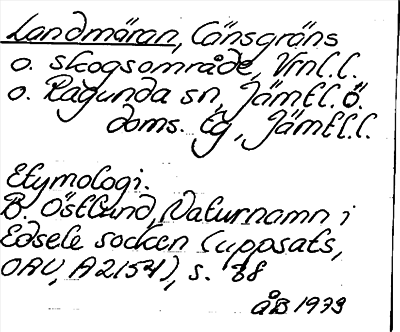 Landmäran, Länsgräns
o. skogsområde, Vrnl.l.
o. Ragunda sn, Jämtl.ö.
doms. tg, Jämtl.l.
Etymologi.
B. Östlund, Naturnamn i
Edsele socken (uppsats,
OAU, A2154), s. 88
ÅB 1979